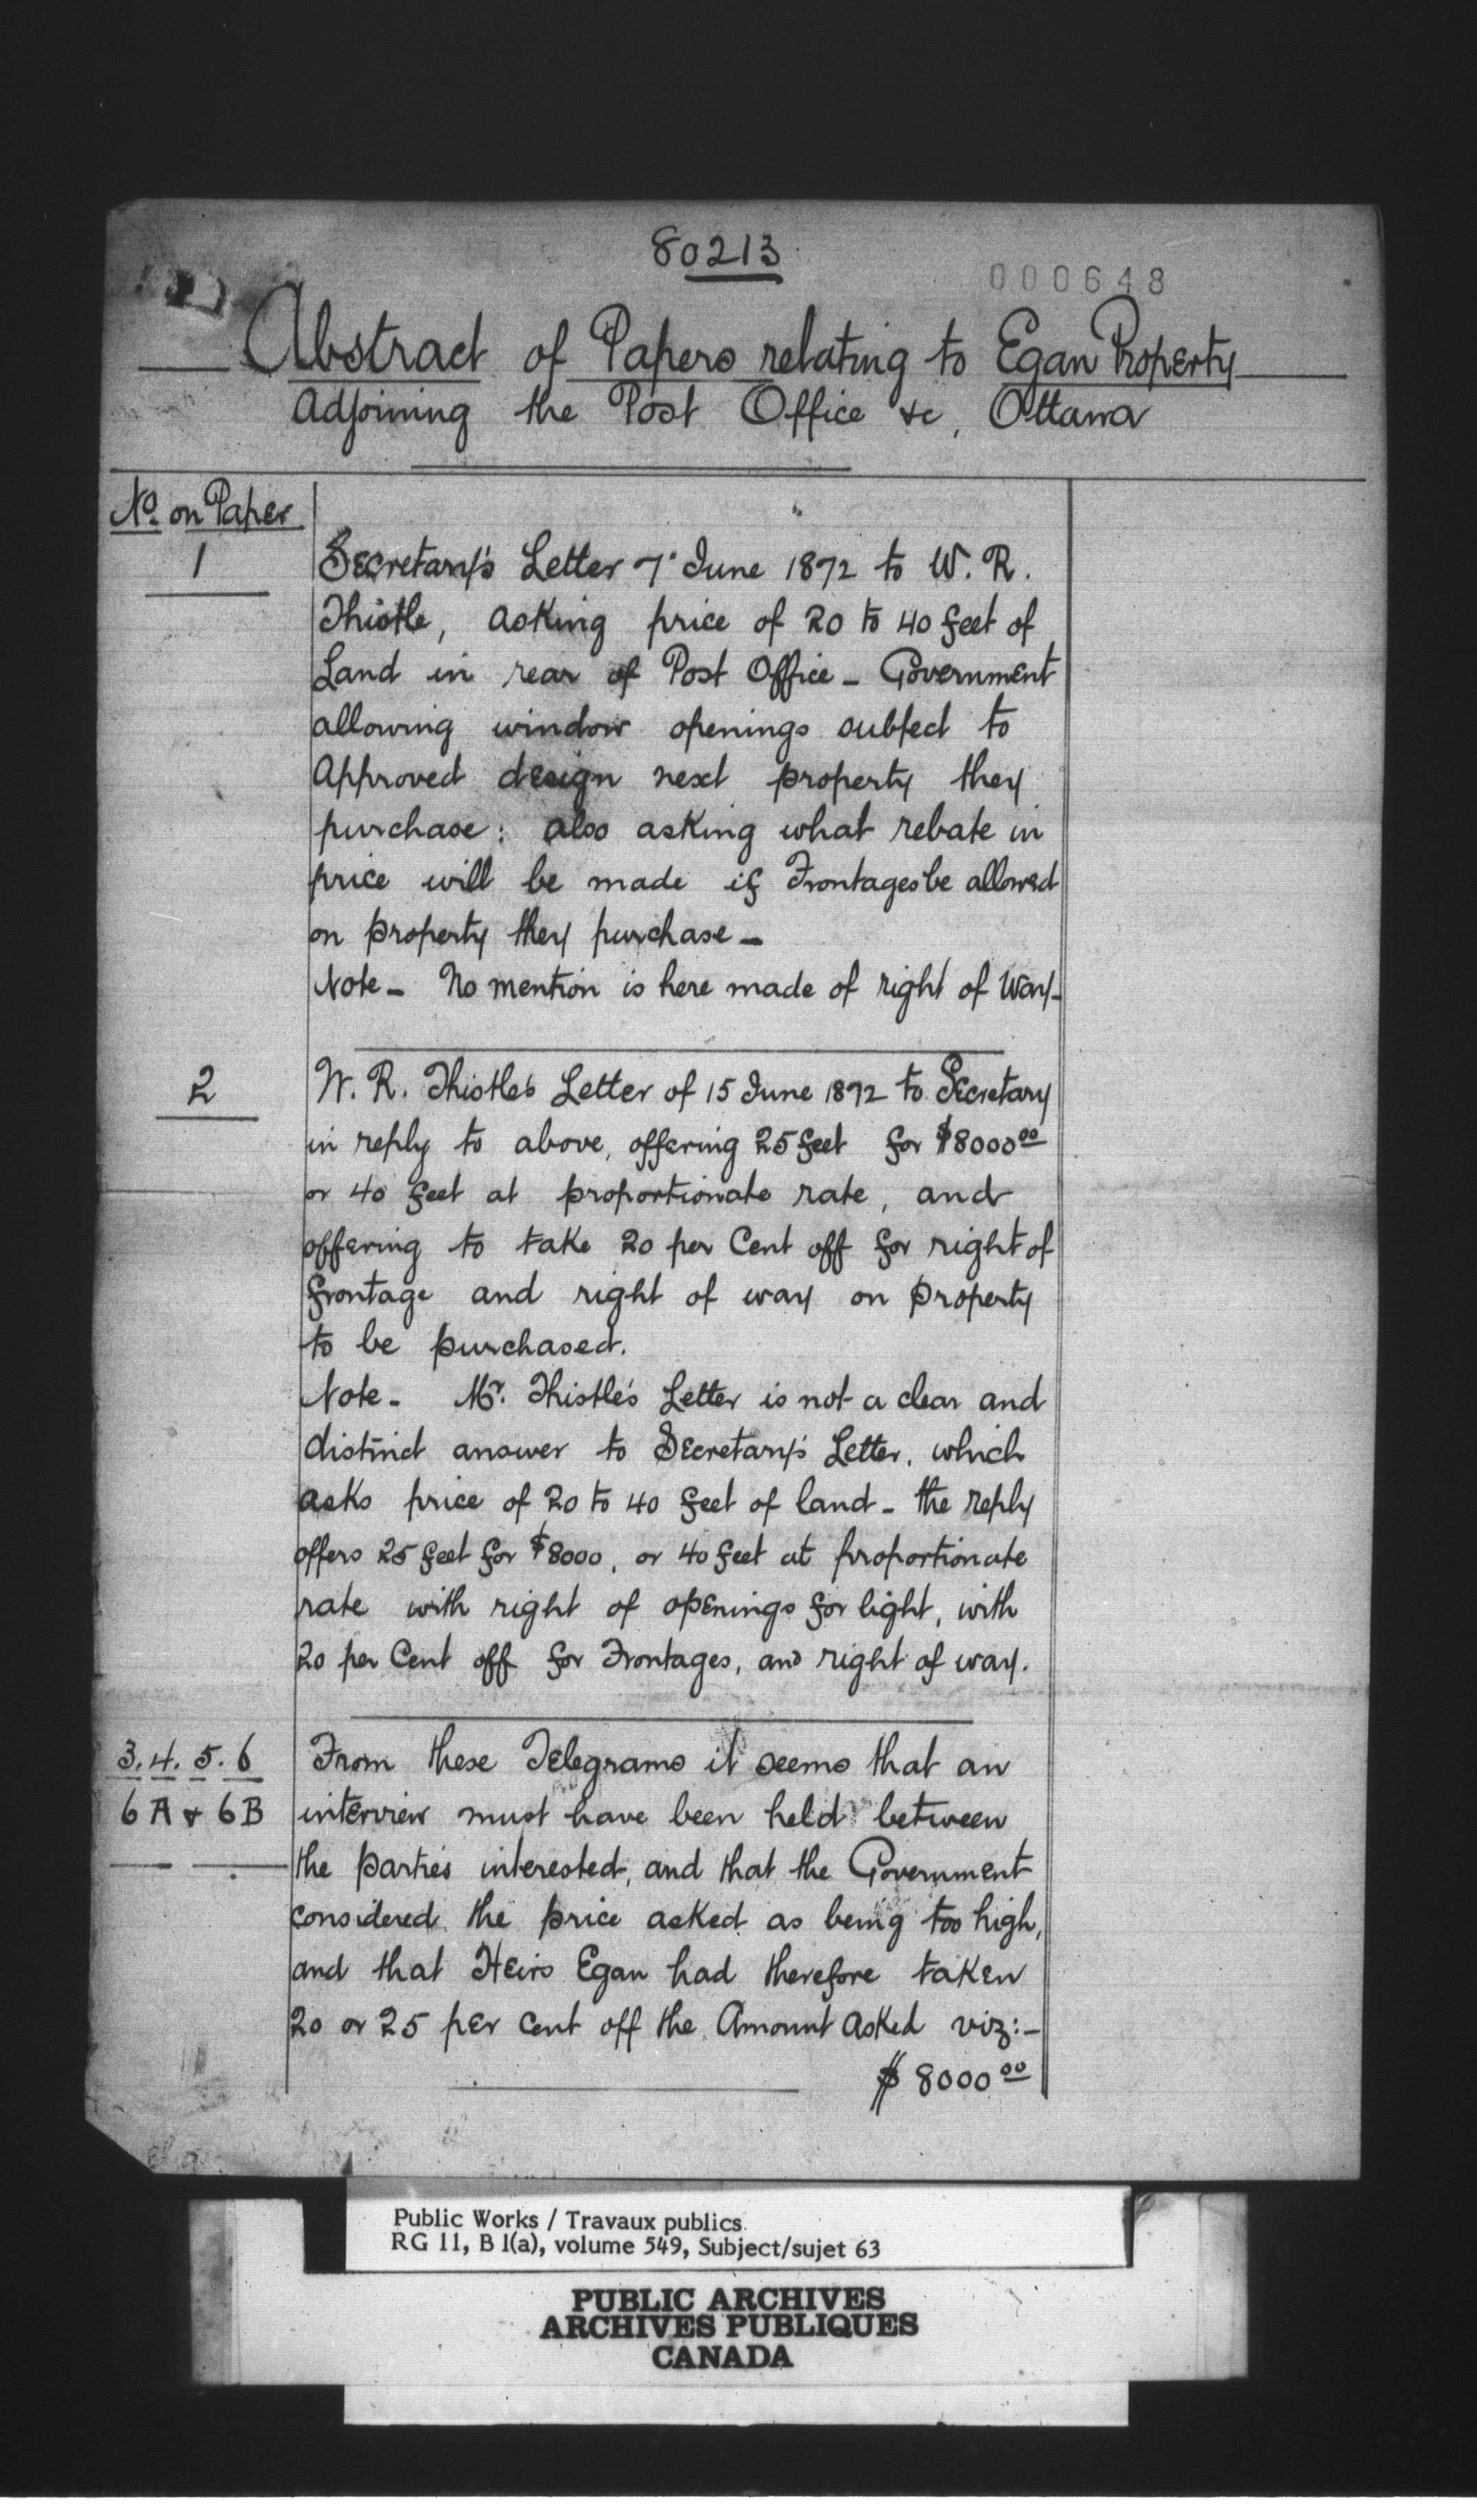 80213
000648
Abstract of Papers relating to Egan Property
Adjoining the Post Office &c, Ottawa
No. on Paper
1
Secretary's Letter 7' June 1872 to W. R.
Thistle, asking price of 20 to 40 feet of
Land in rear of Post Office - Government
allowing window openings subject to
Approved design next property they
purchase: also asking what rebate in
price will be made if Frontages be allowed
on property they purchase -
Note - No mention is here made of right of Way -
2
W. R. Thistle's Letter of 15 June 1872 to Secretary
in reply to above, offering 25 feet for $8000.00
or 40 feet at proportionate rate, and
offering to take 20 per Cent off for right of
frontage and right of way on property
to be purchased.
Note - Mr. Thistle's Letter is not a clear and
distinct answer to Secretary's Letter, which
asks price of 20 to 40 feet of land - the reply
offers 25 feet for $8000, or 40 feet at proportionate
rate with right of openings for light, with
20 per Cent off for Frontages, and right of way.
3. 4. 5. 6
6A & 6B
From these Telegrams it seems that an
interview must have been held between
the parties interested, and that the Government
considered the price asked as being too high,
and that Heirs Egan had therefore taken
20 or 25 per cent off the Amount asked viz:-
$ 8000.00
Public Works / Travaux publics
RG 11, B 1(a), volume 549, Subject/sujet 63
PUBLIC ARCHIVES
ARCHIVES PUBLIQUES
CANADA